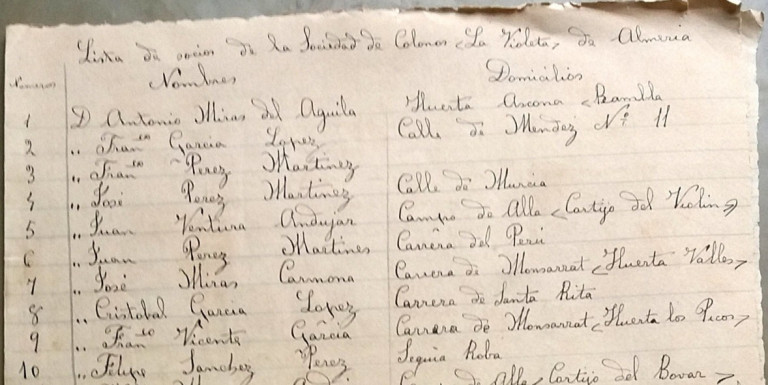 Lista de socios de la Sociedad de Colonos <La Violeta> de Almeria
Numeros Nombres Domicilios
1 D Antonio Miras del Aguila Huerta Ascona <Rambla
2 " Fran.co Garcia Lopez Calle de Mendez Nº 11
3 " Fran.co Perez Martinez
4 " José Perez Martinez Calle de Murcia
5 " Juan Ventura Andujar Campo de Alla <Cortijo del Violin>
6 " Juan Perez Martines Carrera del Perú
7 " José Miras Carmona Carrera de Monsarrat <Huerta Valles>
8 " Cristobal Garcia Lopez Carrera de Santa Rita
9 " Fran.co Vicente Garcia Carrera de Monsarrat <Huerta los Picos>
10 " Felipe Sanchez Perez Seguia Roba
Alla <Cortijo del Bovar>